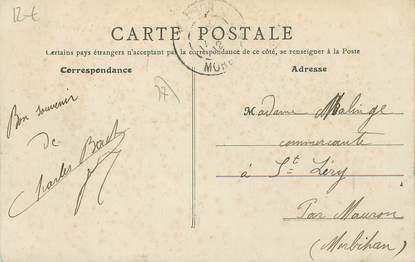 12-€
CARTE POSTALE
Certains pays étrangers n'acceptant pas la correspondance de ce côté, se renseigner à la Poste
Correspondance
Adresse
Bon souvenir
de
Charles
Madame Malinge
commercante
à St Léry
Par Mauron
(Morbihan)